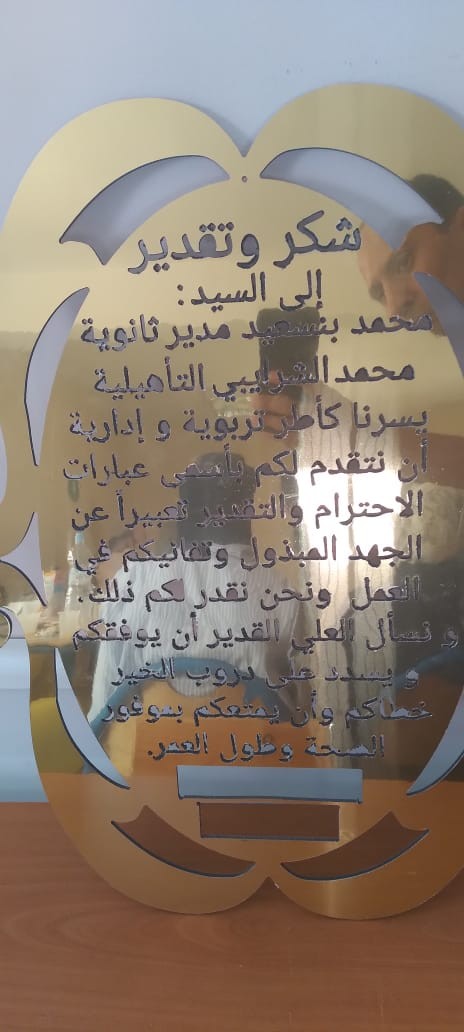 شكر وتقدير
إلى السيد:
محمد بنسعيد مدير ثانوية
محمد الشرايبي التأهيلية
يسرنا كأطر تربوية و إدارية
أن نتقدم لكم بأسمى عبارات
الاحترام والتقدير تعبيراً عن
الجهد المبذول وتفانيكم في
العمل ونحن نقدر لكم ذلك.
و نسأل العلي القدير أن يوفقكم
و يسدد على دروب الخير
خطاكم وأن يمتعكم بموفور
الصحة وطول العمر.